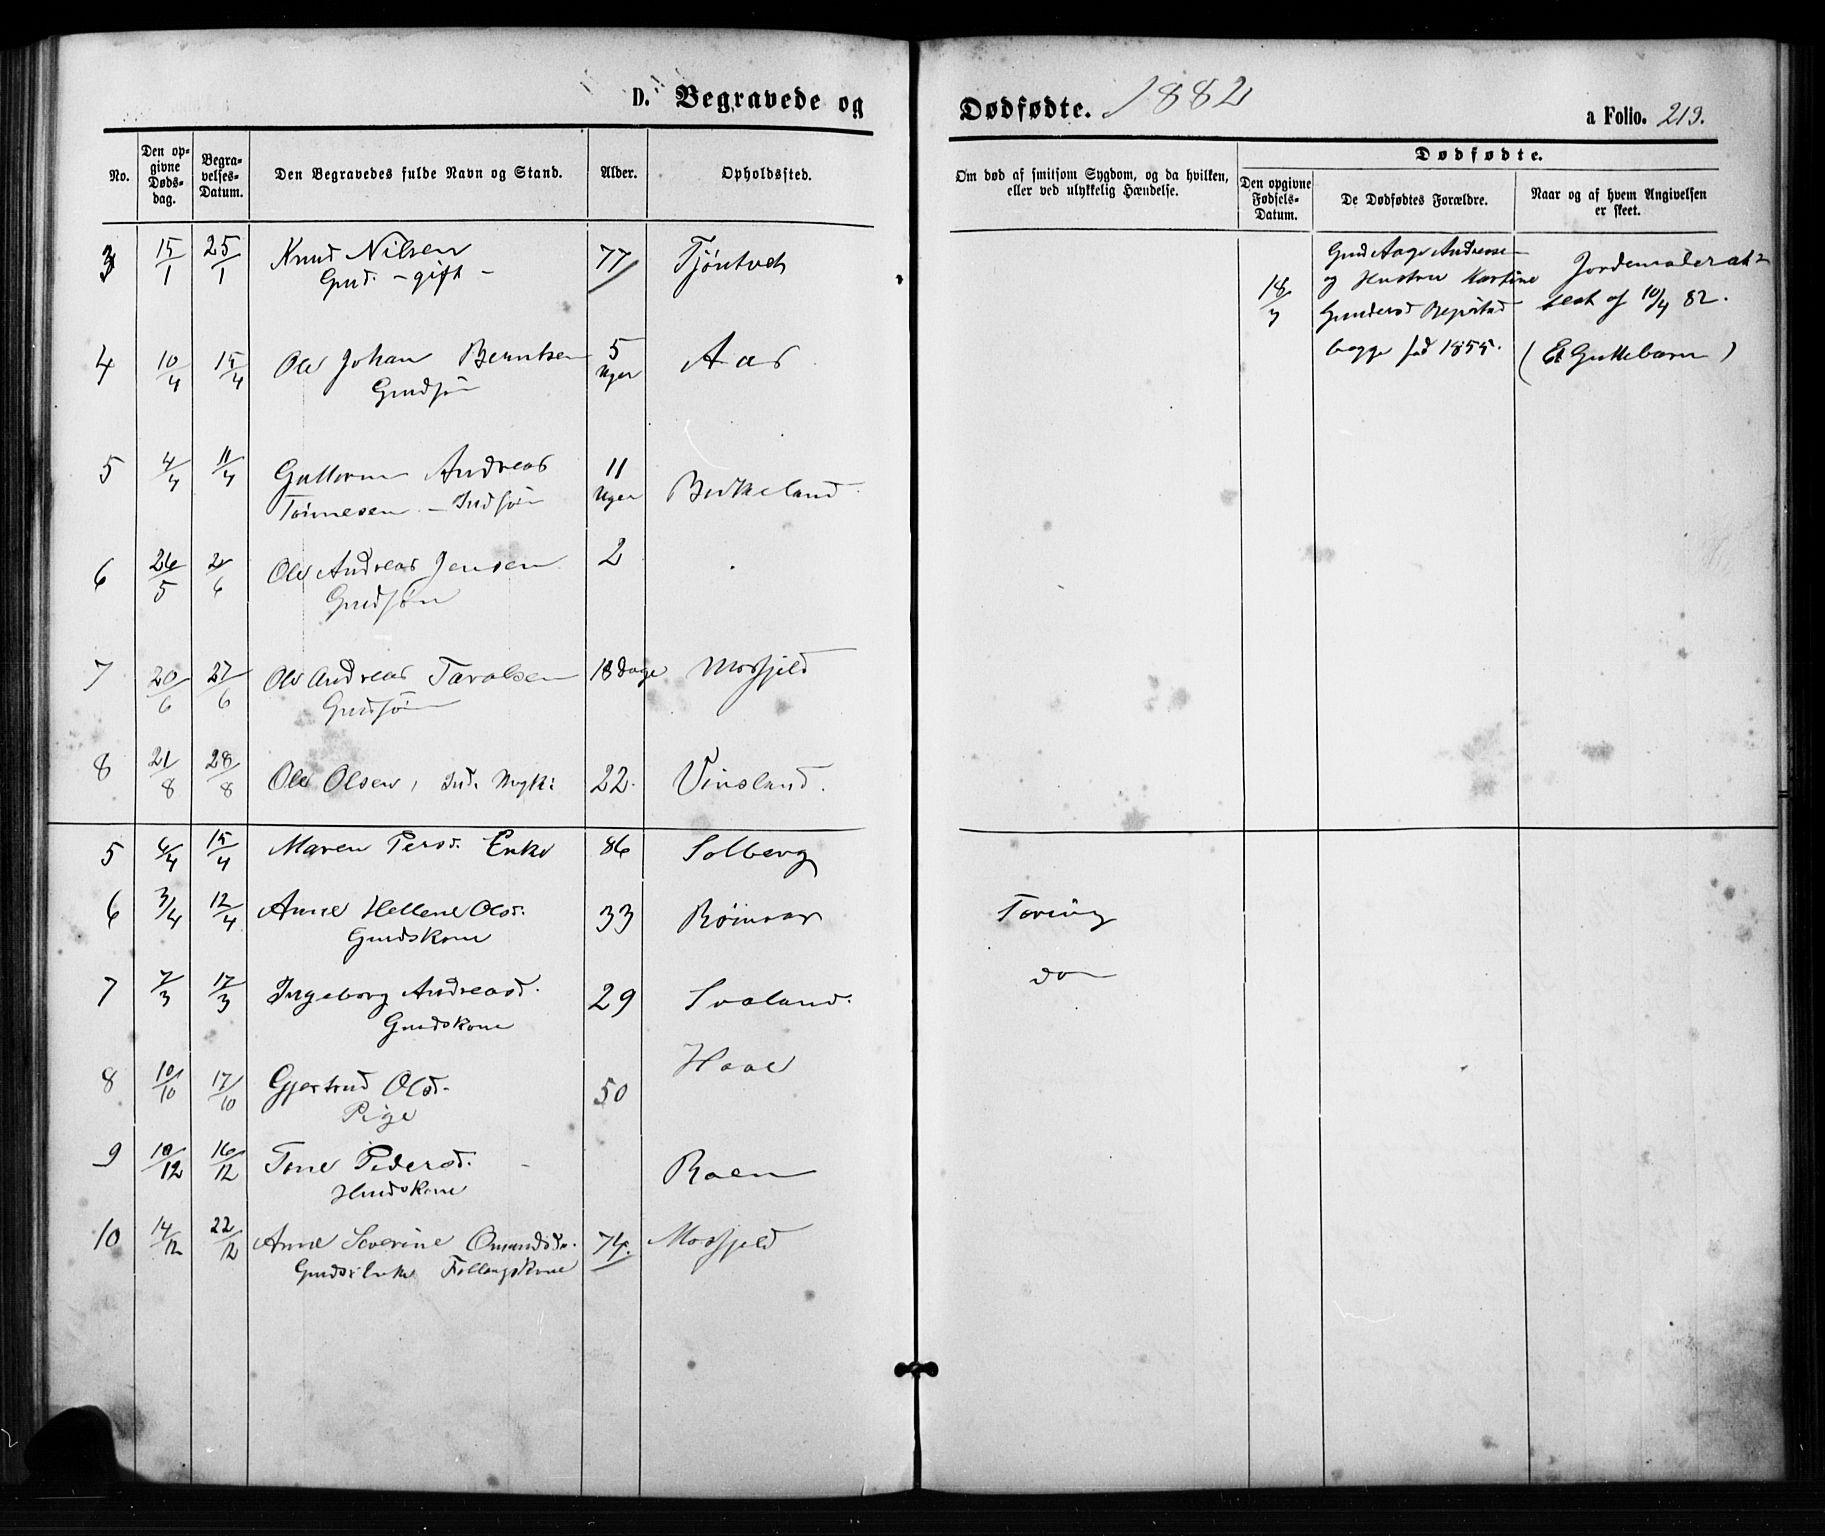 D. Begravede og Dødfødte. 1882
a Folio. 213.
No.
Den opgivne Dødsdag.
Begravelses-Datum.
Den Begravedes fulde Navn og Stand.
Alder.
Opholdssted.
Om død af smitsom Sygdom, og da hvilken, eller ved ulykkelig Hændelse.
Dødfødte.
Den opgivne Fødsels-Datum.
De Dødfødtes Forældre.
Naar og af hvem Angivelsen er skeet.
3 15/1 25/1 Knud Nilsen 77 Tjøntvet
Gmd. - gift -
4 10/4 15/4 Ole Johan Berntsen 5 Uger Aas
Gmdsøn
5 4/4 11/4 Guttorm Andreas 11 Uger Birkeland
Tønnesen - Indsøn
6 26/5 2/6 Ole Andreas Jensen 2
Gmdsøn
7 20/6 27/6 Ole Andreas Taralsen 18 Dage Mosfjeld
Gmdsøn
8 21/8 28/8 Ole Olsen, Ind. Ungk: 22. Vinsland.
5 6/4 15/4 Maren Persd. Enke 86 Solberg
6 3/4 12/4 Anne Hellene Olsd. 33 Tæring
Gmdskone
7 7/3 17/3 Ingeborg Andreasd. 29 Svaland. do
Gmdskone
8 10/10 17/10 Gjertrud Olsd. 50
Pige
9 10/12 16/12 Tone Pedersd. Roen
Hmdskone
10 14/12 22/12 Anne Severine Omundsd. 74. Mosfjeld
Gmdsenke
18/3
Gmd Aage Andersen
og Hustru Martine
Gundersd Repstad
begge fød 1855.
Jordemoder
10/4 82.
(Et Guttebarn)